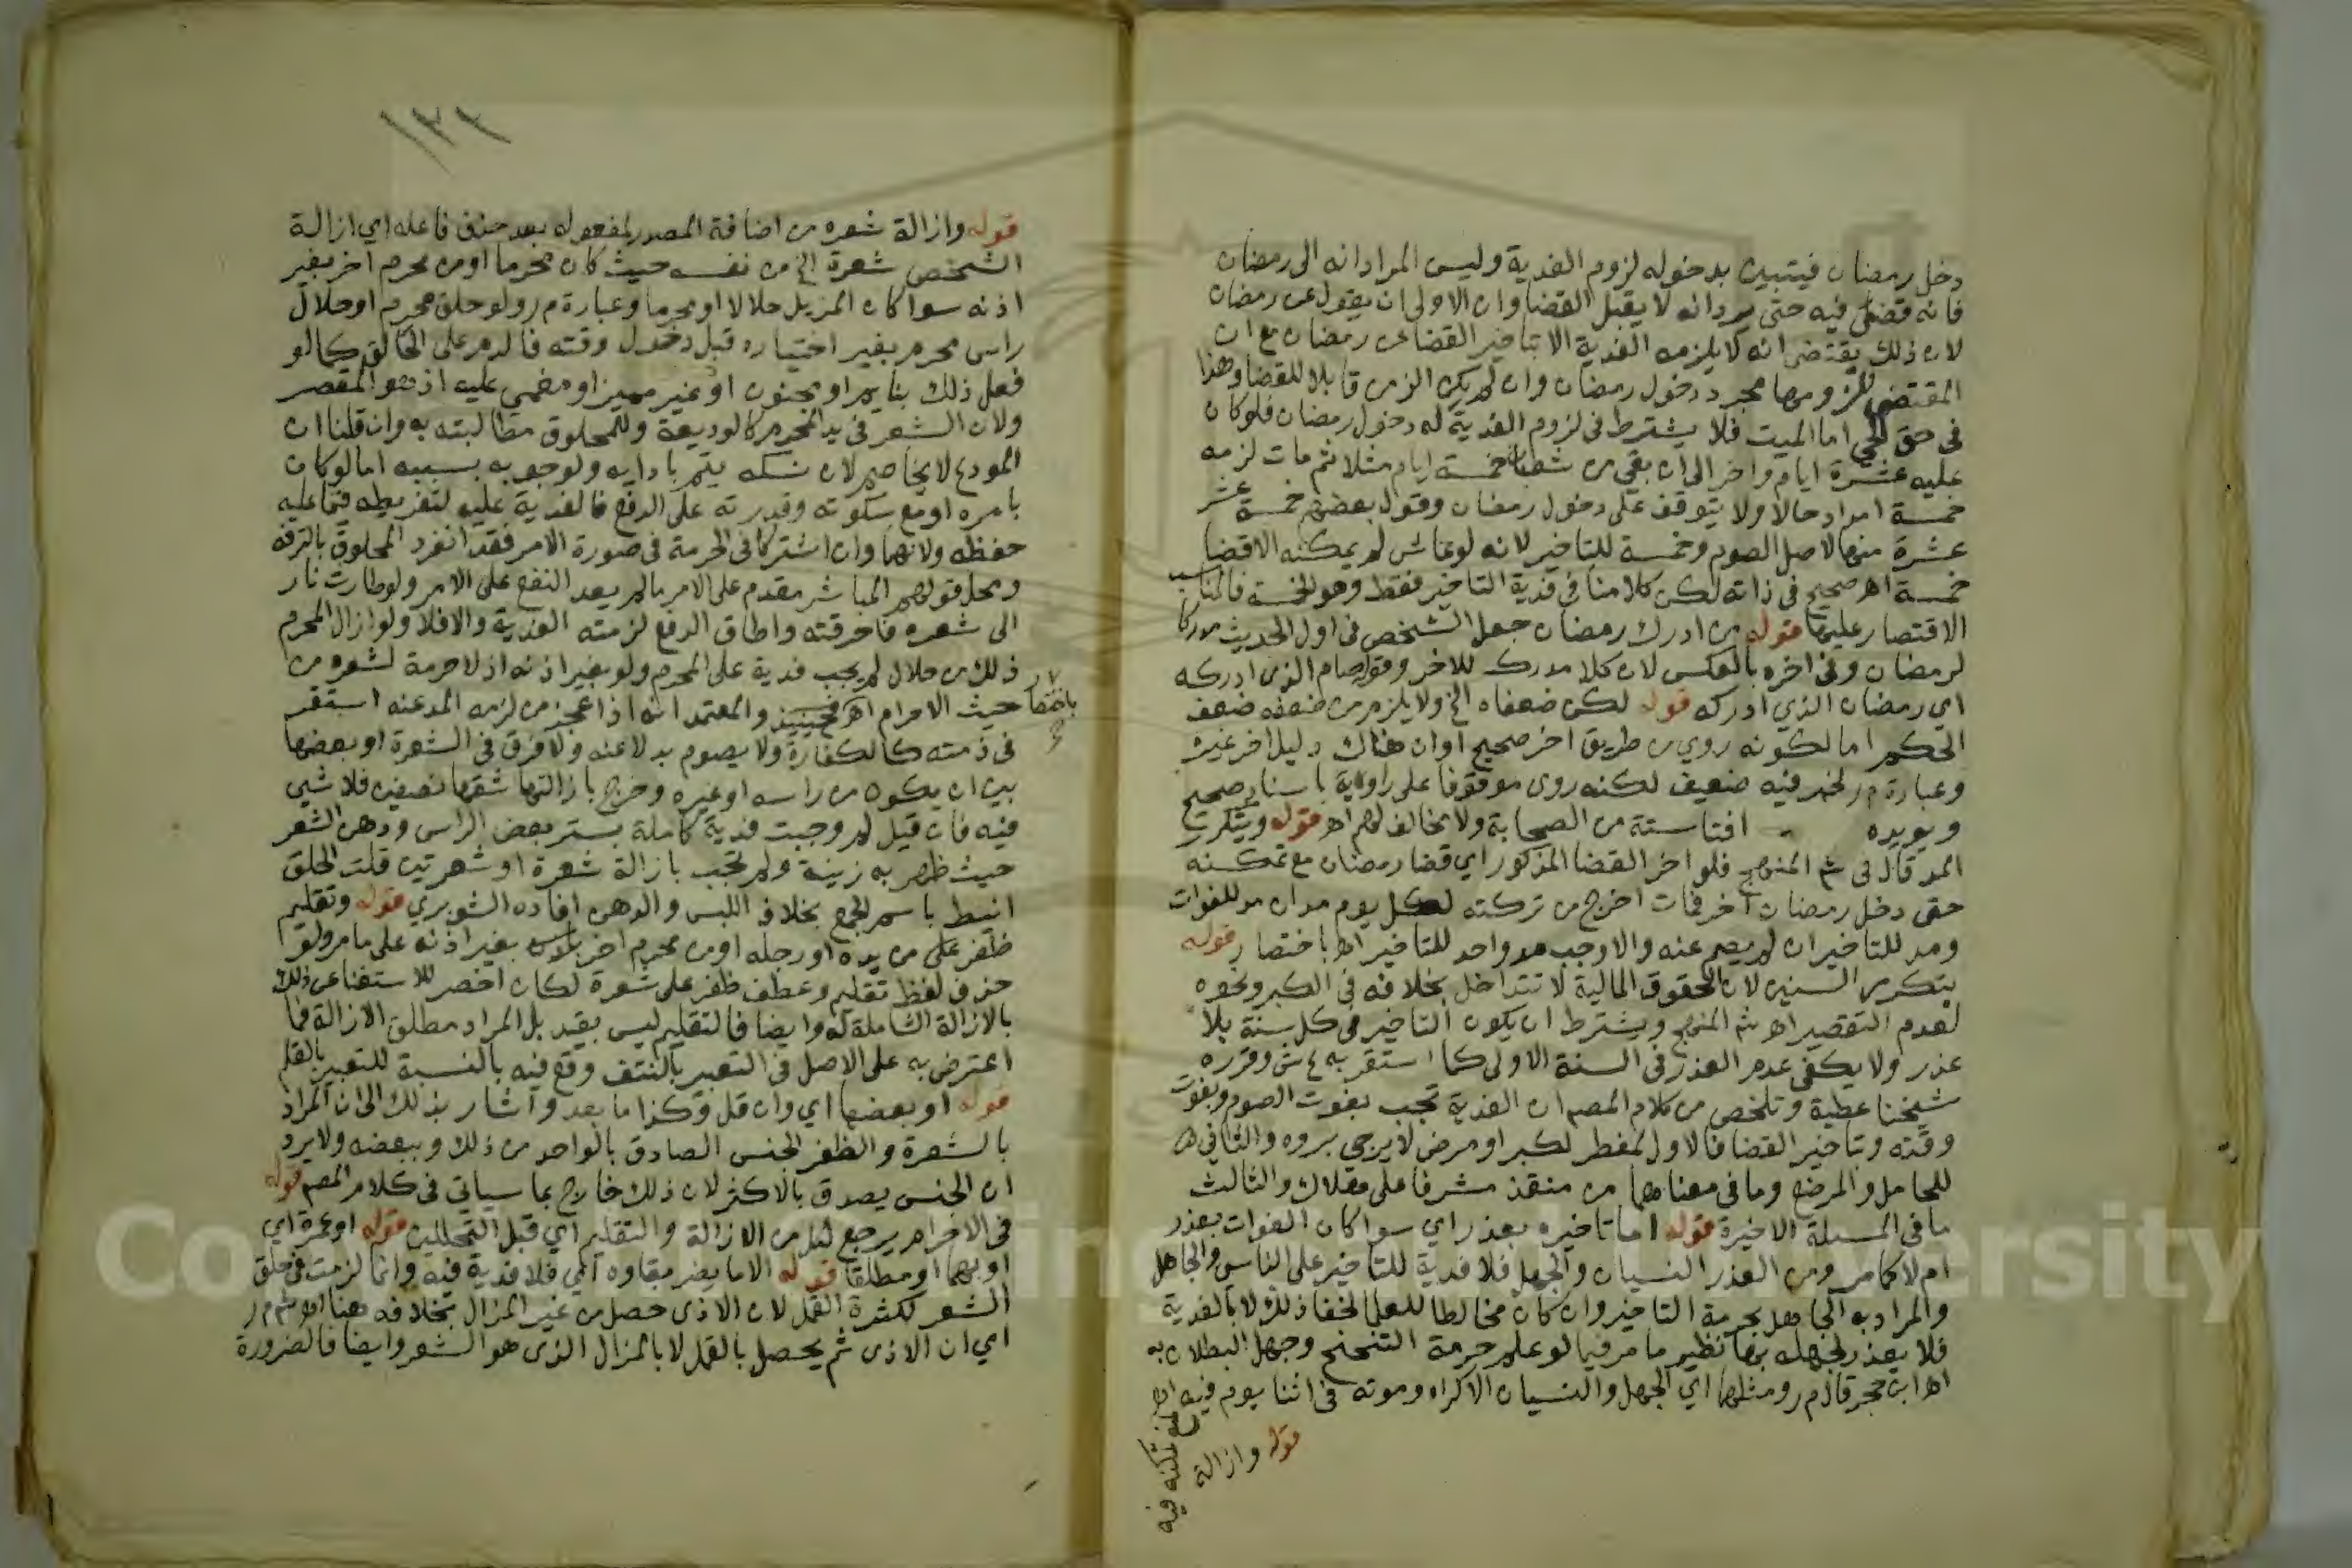 دخل رمضان فيتبين بدخوله لزوم الفدية وليس المراد انه الى رمضان
فانه قضى فيه حتى يرد انه لا يقبل القضا وان الاولى ان يقول عن رمضان
لان ذلك يقتضى انه لا يلزمه الفدية الا بتاخير القضا عن رمضان مع ان
المقتضى للزومها مجرد دخول رمضان وان لم يكن الزمن قابلا للقضا وهذا
فى حق الحي اما الميت فلا يشترط فى لزوم الفدية له دخول رمضان فلو كان
عليه عشرة ايام واخر الى ان بقى من شعبان خمسة ايام مثلا ثم مات لزمه
خمسة امداد حالا ولا يتوقف على دخول رمضان وقول بعضهم خمسة عشر
عشرة منها لاصل الصوم وخمسة للتاخير لانه لو عاش لم يمكنه الا قضا
خمسة اهـ صحيح فى ذاته لكن كلامنا فى فدية التاخير فقط وهو الخمسة فالمناسب
الاقتصار عليها قوله من ادرك رمضان جعل الشخص فى اول الحديث مدركا
لرمضان وفى اخره بالعكس لان كلا مدرك للاخر وقوله صام الذى ادركه
اي رمضان الذي ادركه قوله لكن ضعفاه الخ ولا يلزم من ضعفه ضعف
الحكم اما لكونه روي من طريق اخر صحيح او ان هناك دليلا اخر غيره
وعبارة م ر لخبر فيه ضعيف لكنه روى موقوفا على راويه باسناد صحيح
ويويده افتا ستة من الصحابة ولا مخالف لهم اهـ قوله ويتكرر
المد قال فى شم المنهج فلو اخر القضا المذكور اي قضا رمضان مع تمكنه
حتى دخل رمضان اخر فمات اخرج من تركته لكل يوم مدان مد للفوات
ومد للتاخير ان لم يصم عنه والا وجب مد واحد للتاخير اهـ باختصار قوله
بتكرر السنين لان الحقوق المالية لا تتداخل بخلافه فى الكبر ونحوه
لعدم التقصير اهـ شم المنهج ويشترط ان يكون التاخير فى كل سنة بلا
عذر ولا يكفى عدم العذر فى السنة الاولى كما استقر به ع ش وقرره
شيخنا عطية وتلخص من كلام المصم ان الفدية تجب بفوت الصوم وبفوت
وقته وتاخير القضا فالاول لمفطر لكبر او مرض لا يرجى بروه والثانى
للحامل والمرضع وما فى معناهما من منقذ مشرفا على هلاك والثالث
ما فى المسيلة الاخيرة قوله اما تاخيره بعذر اي سوا كان الفوات بعذر
ام لا كما مر ومن العذر النسيان والجهل فلا فدية للتاخير على الناسى والجاهل
والمراد به الجاهل بحرمة التاخير وان كان مخالطا للعلما لخفا ذلك لا بالفدية
فلا يعذر لجهله بها نظير ما مر فيما لو علم حرمة التنحنح وجهل البطلان به
اهـ ابن حجر قال م ر ومثلهما اي الجهل والنسيان الاكراه وموته فى اثنا يوم فيه
تمكنه فيه
قوله وازالة
١٣٢
قوله وازالة شعره من اضافة المصدر لمفعوله بعد حذف فاعله اي ازالة
الشخص شعرة الخ من نفسه حيث كان محرما او من محرم اخر بغير
اذنه سوا كان المزيل حلالا او محرما وعبارة م ر ولو حلق محرم او حلال
راس محرم بغير اختياره قبل دخول وقته فالدم على الحالق كما لو
فعل ذلك بنايم او مجنون او غير مميز او مغمى عليه اذ هو المقصر
ولان الشعر فى يد المحرم كالوديعة وللمحلوق مطالبته به وان قلنا ان
المودع لا يخاصم لان نسكه يتم بادايه ولوجوبه بسببه اما لو كان
بامره او مع سكوته وقدرته على الدفع فالفدية عليه لتفريطه فيما عليه
حفظه ولانهما وان اشتركا فى الحرمة فى صورة الامر فقد انفرد المحلوق بالترفه
ومحل قولهم المباشر مقدم على الامر ما لم يعد النفع على الامر ولو طارت نار
الى شعره فاحرقته واطاق الدفع لزمته الفدية والا فلا ولو ازال المحرم
ذلك من حلال لم يجب فدية على المحرم ولو بغير اذنه اذ لا حرمة لشعره من
حيث الاحرام اهـ باختصار فحينيذ والمعتمد انه اذا عجز من لزمه المد عنه استقر
فى ذمته كالكفارة ولا يصوم بدلا عنه ولا فرق فى الشعرة او بعضها
بين ان يكون من راسه او غيره وخرج بازالتها شقها نصفين فلا شي
فيه فان قيل لم وجبت فدية كاملة بستر بعض الراس ودهن الشعر
حيث ظهر به زينة ولم تجب بازالة شعرة او شعرتين قلت الحلق
انيط باسم الجمع بخلاف اللبس والدهن افاده الشوبري قوله وتقليم
ظفر على من يده او رجله او من محرم اخر بغير اذنه على ما مر ولو
حذف لفظ تقليم وعطف ظفر على شعرة لكان اخصر للاستغنا عن ذلك
بالازالة الشاملة له وايضا فالتقليم ليس بقيد بل المراد مطلق الازالة فما
اعترض به على الاصل فى التعبير بالنتف وقع فيه بالنسبة للتعبير بالقلم
قوله او بعضها اي وان قل وكذا ما بعد واشار بذلك الى ان المراد
بالشعرة والظفر الجنس الصادق بالواحد من ذلك وببعضه ولا يرد
ان الجنس يصدق بالاكثر لان ذلك خارج بما سياتى فى كلام المصم قوله
فى الاحرام يرجع لكل من الازالة والتقليم اي قبل التحللين قوله او عمرة اي
او بهما او مطلقا قوله الا ما يضر بقاوه اي فلا فدية فيه وانما لزمت فى حلق
الشعر لكثرة القمل لان الاذى حصل من غير المزال بخلافه هنا اهـ شم م ر
اي ان الاذى ثم يحصل بالقمل لا بالمزال الذى هو الشعر وايضا فالضرورة